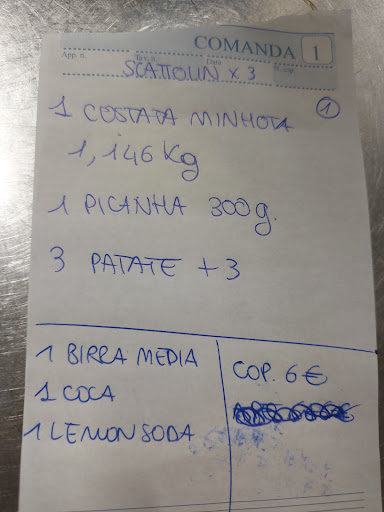 COMANDA 1
App. n. Tav. n. Data N. cop.
SCATTOLIN x 3
1 COSTATA MINHOTA 1
1,146 Kg
1 PICANHA 300 g.
3 PATATE + 3
1 BIRRA MEDIA
1 COCA
1 LEMONSODA
COP. 6 €